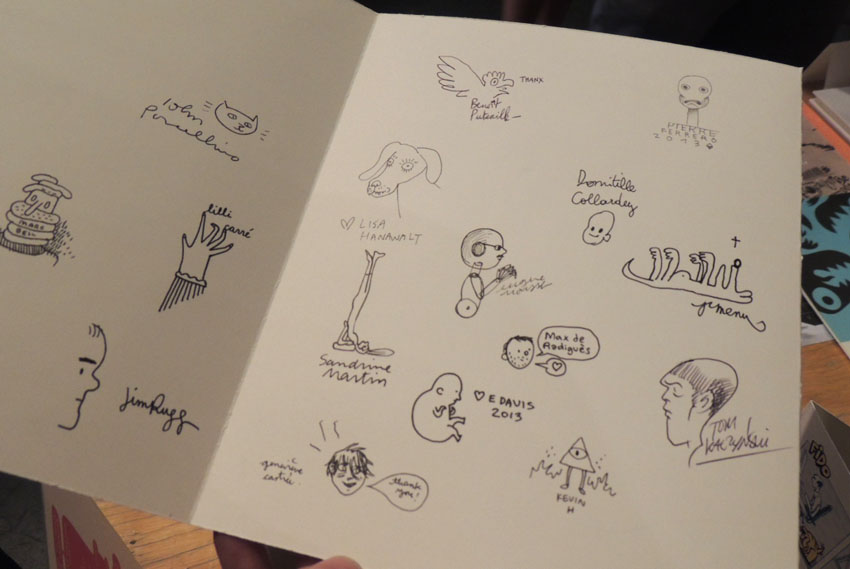 John
Porcellino
MARC
BELL
lilli
carré
JimRugg
THANX
PIERRE
FERRERO
2013
♡ LISA
HANAWALT
Domitille
Collardey
Sandrine
Martin
Max de
Radiguès
♡
♡ E DAVIS
2013
TOM
KACZYNSKI
geneviève
castrée
thank
you!
KEVIN
H
FIDO